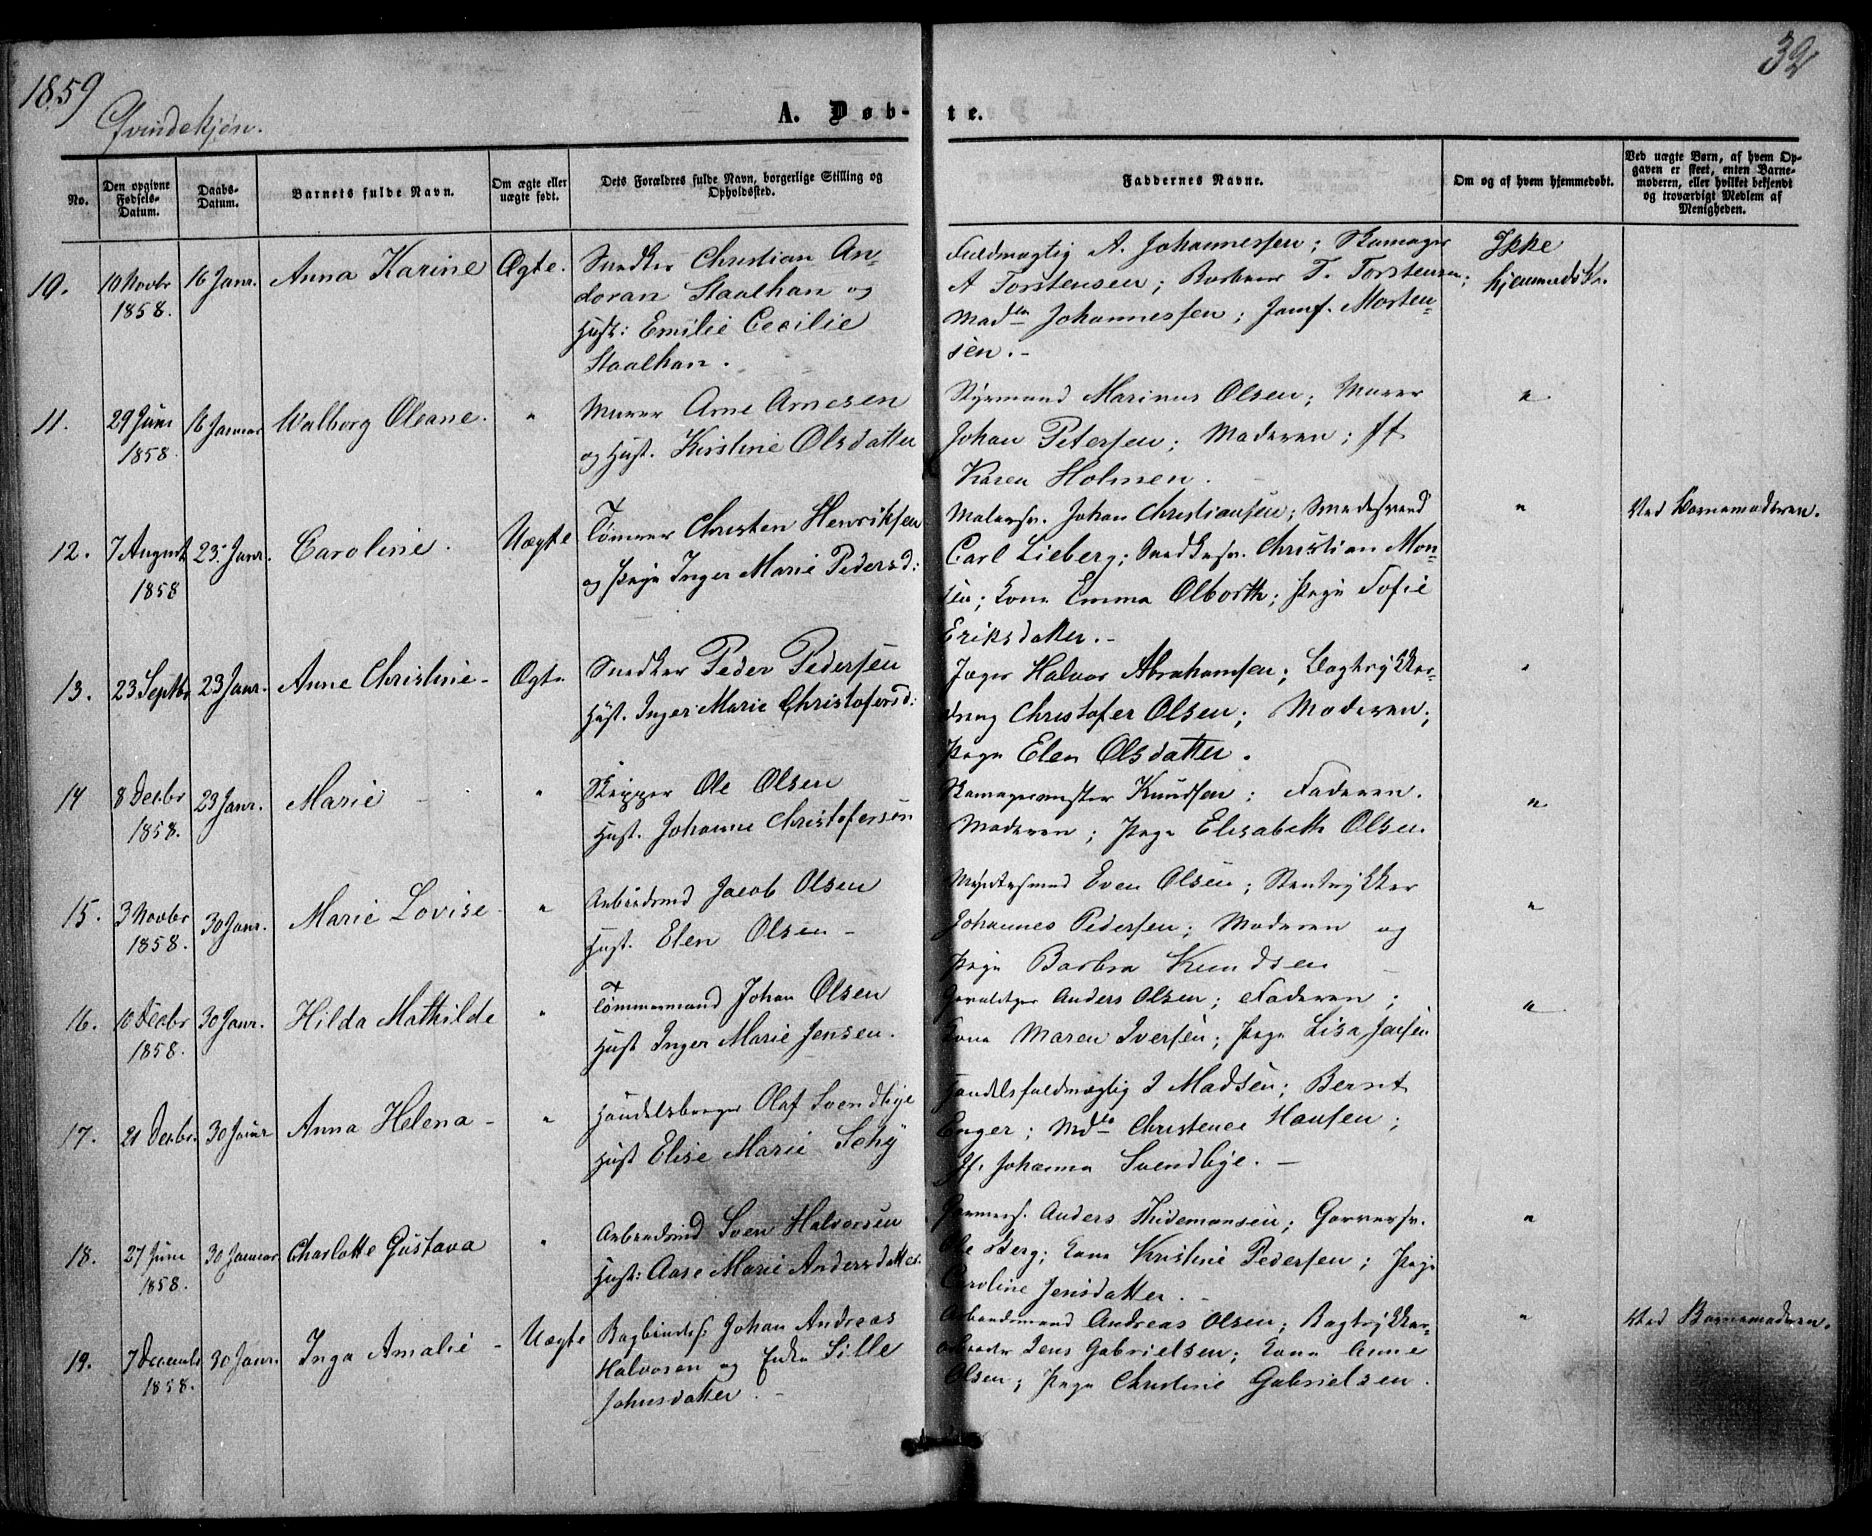 1859
32
Qvindekjøn.
A. Døb-te.
No.
Den opgivne Fødsels-Datum.
Daabs-Datum.
Barnets fulde Navn.
Om ægte eller uægte født.
Dets Forældres fulde Navn, borgerlige Stilling og Opholdssted.
Faddernes Navne.
Om og af hvem hjemmedøbt.
Ved uægte Børn, af hvem Opgaven er skeet, enten Barnemoderen, eller hvilket bekjendt og troværdigt Medlem af Menigheden.
10. 10 Novbr 1858. 16 Janr. Anna Karine Ægte.
Snedker Christian An-
doran Staalhan og
Hust: Emilie Cecilie
Staalhan.
Fuldmægtig A. Johannessen; Skomager
A Torstensen; Barbeer T. Torstensen;
Madm Johannessen; Jomf. Morten-
sen.-
Ikke
hjemmedøbt.
11. 29 Juni 1858. 16 Januar Walborg Oleane. "
Murer Arne Arnesen
og Hust. Kirstine Olsdatter
Styrmand Marinus Olsen; Murer
Johan Petersen; Moderen; Jf.
Karen Holmen.
"
12. 7 August 1858 23. Janr. Caroline. Uægte
Tømrer Christen Henriksen
og Pige Inger Marie Pedersd:
Malersv. Johan Christiansen; Smedesvend
Carl Lieberg; Snedkersv. Christian Mon-
sen; Kone Emma Olborth; Pige Sofie
Eriksdatter.-
"
Ved Barnemoderen.
13. 23 Septbr 23 Janr. Anne Christine- Ægte
Snedker Peder Pedersen
Hust. Inger Marie Christofersd:
Jæger Halvor Abrahamsen; Bogtrykker-
dreng Christofer Olsen; Moderen;
Pige Elen Olsdatter.
"
14 8 Decbr 1858. 23 Janr. Marie - "
Skipper Ole Olsen
Hust. Johanne Christofersen
Skomagermester Knudsen; Faderen.
Moderen; Pige Elisabeth Olsen.
"
15. 3 Novbr 1858. 30 Janr. Marie Lovise- "
Arbeidsmd Jacob Olsen
Hust. Elen Olsen-
Myntersmed Even Olsen; Stentrykker
Johannes Pedersen; Moderen og
Pige Barbra Knudsen
"
16. 10 Decbr 1858. 30 Janr. Hilda Mathilde "
Tømmermand Johan Olsen
Hust Inger Marie Jensen.
Anders Olsen; Faderen;
Kone Maren Iversen; Pige Lisa Jansen
"
17. 21 Decbr. 30 Janr Anna Helena- "
Handelsborger Olaf Svendbye
Hust Elise Marie Schÿ
Handelsfuldmægtig I Madsen; Bernt
Enger; Mdm Christence Hansen;
Jf. Johanna Svendbye.-
18. 27 Juni 1858. 30 Januar Charlotte Gustava "
Arbeidsmd Sven Halvorsen
Hust: Aase Marie Andersdatter.
Garversv. Anders Thidemansen; Garversv.
Ole Berg; Kone Kristine Pedersen; Pige
Caroline Jensdatter.-
"
19. 7 Decembr 1858. 30 Janr. Inga Amalie- Uægte
Bogbindersv. Johan Andreas
Halvorsen og Enke Sille
Johnsdatter.-
Arbeidsmand Andreas Olsen; Bogtrykker-
arbeider Jens Gabrielsen; Kone Anne
Olsen; Pige Christine Gabrielsen.
"
Ved Barnemoderen.